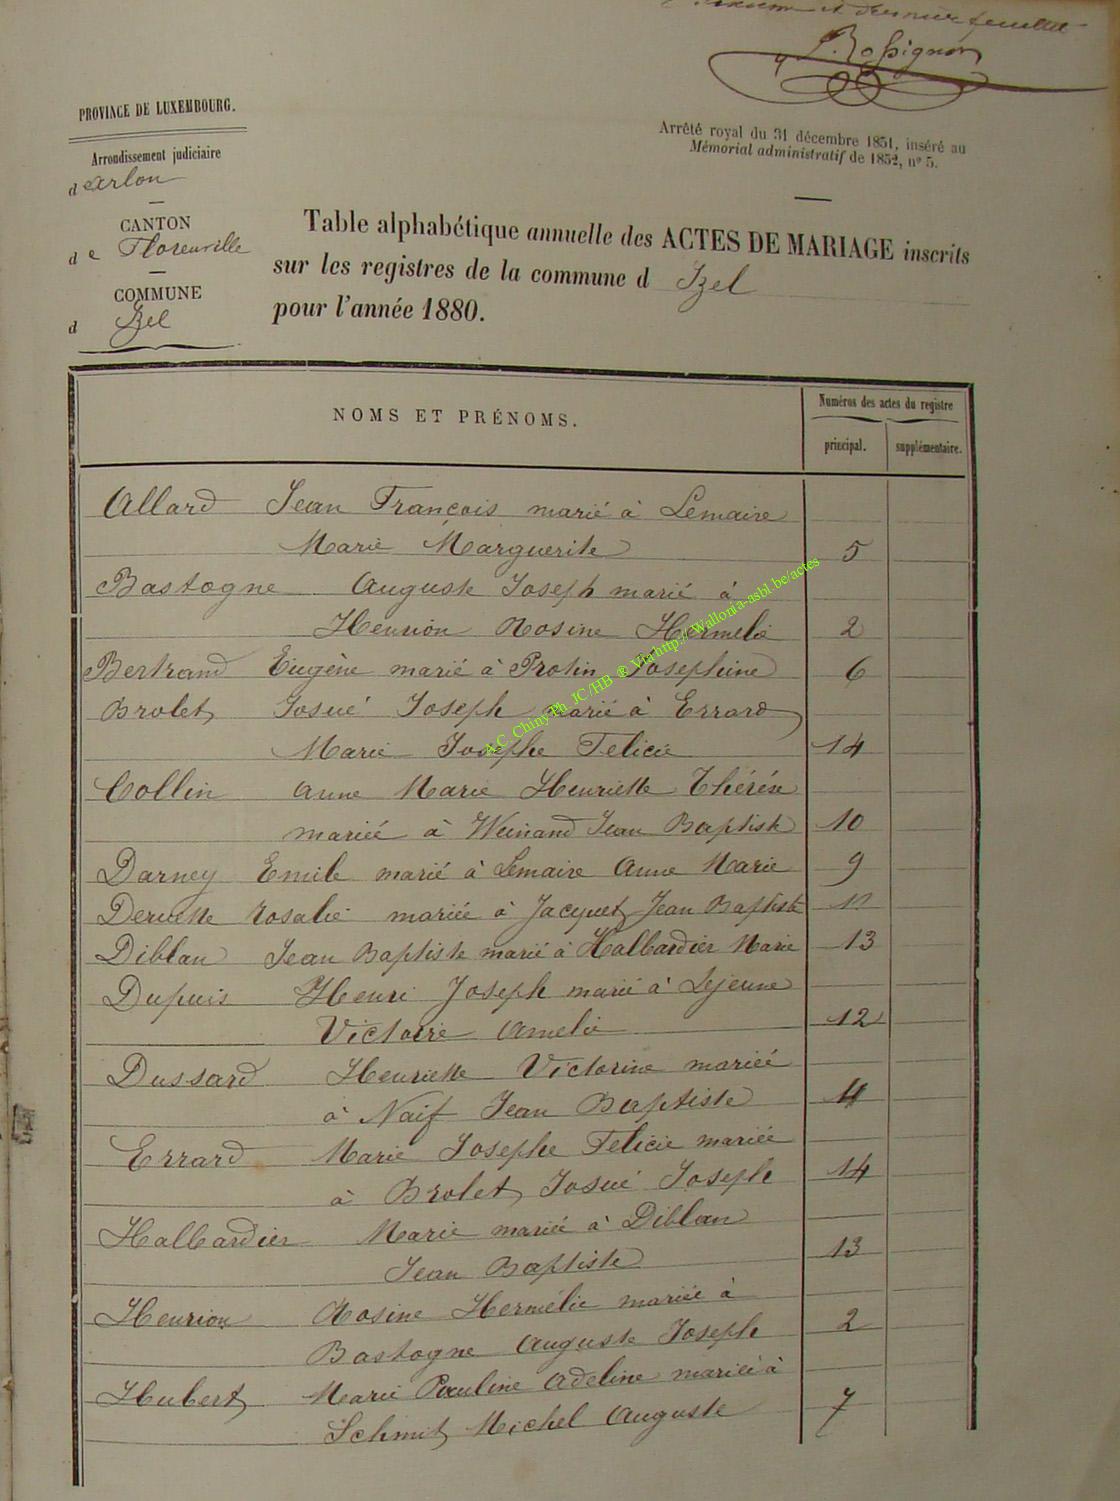 et dernier feuillet
Rossignon
PROVINCE DE LUXEMBOURG.
Arrondissement judiciaire
d'Arlon
CANTON
de Florenville
COMMUNE
d Izel
Arrêté royal du 31 décembre 1851, inséré au
Mémorial administratif de 1852, nº 5.
Table alphabétique annuelle des ACTES DE MARIAGE inscrits
sur les registres de la commune d Izel
pour l'année 1880.
NOMS ET PRÉNOMS.
Numéros des actes du registre
principal.
supplémentaire.
Allard Jean François marié à Lemaire
Marie Marguerite 5
Bastogne Auguste Joseph marié à
Henrion Rosine Hermelie 2
Bertrand Eugène marié à Protin Josephine 6
Brolet Josué Joseph marié à Errard
Marie Josephe Felicie 14
Collin Anne Marie Henriette Thérése
mariée à Weinand Jean Baptiste 10
Darney Emile marié à Lemaire Anne Marie 9
Rosalie mariée à Jacquet Jean Baptiste 11
Diblan Jean Baptiste marié à Halbardier Marie 13
Dupuis Henri Joseph marié à Lejeune
Victoire Amelie 12
Dussard Henriette Victorine mariée
à Naif Jean Baptiste 4
Errard Marie Josephe Felicie mariée
à Brolet Josué Joseph 14
Halbardier Marie mariée à Diblan
Jean Baptiste 13
Henrion Rosine Hermélie mariée à
Bastogne Auguste Joseph 2
Hubert Marie Pauline Adeline mariée à
Schmit Michel Auguste 7
A.C. Chiny Ph JC/HB ® Via http://Wallonia-asbl.be/actes